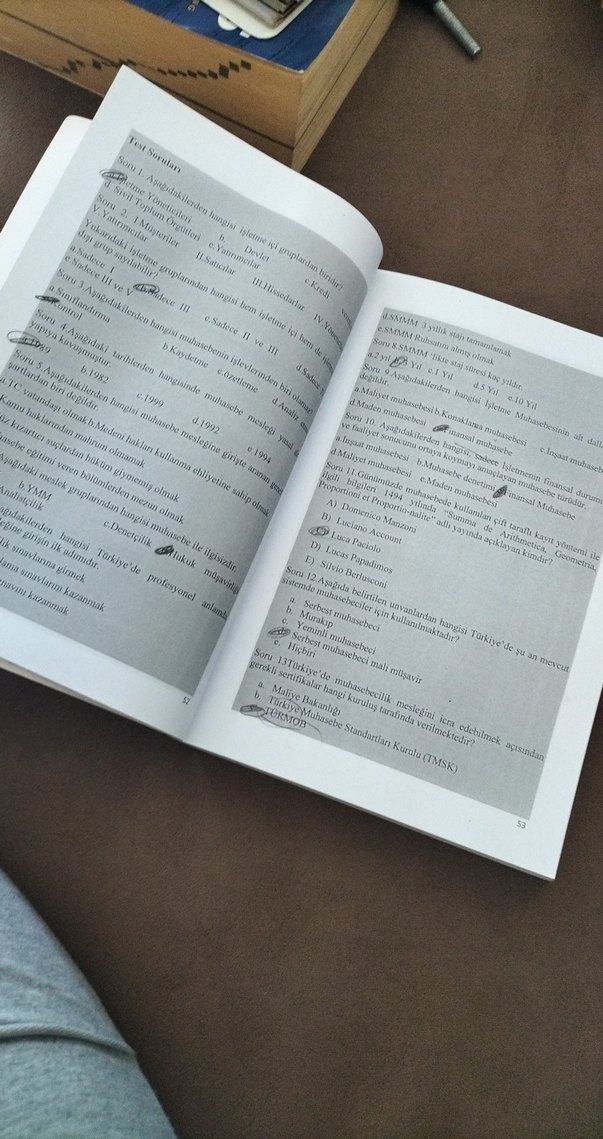 Test Soruları
Soru 1. Aşağıdakilerden hangisi işletme içi gruplardan biridir?
İşletme Yöneticileri b. Devlet c.Kredi
d. Sivil Toplum Örgütleri e.Yatırımcılar
Soru 2. I.Müşteriler II.Satıcılar III.Hissedarlar IV.
V.Yatırımcılar
Yukarıdaki işletme gruplarından hangisi hem işletme içi hem de
dışı grup sayılabilir?
a.Sadece I b.Sadece III c.Sadece II ve III d.Sadece
e.Sadece III ve V
Soru 3.Aşağıdakilerden hangisi muhasebenin işlevlerinden biri
a.Sınıflandırma b.Kaydetme c.özetleme d.Analiz
Kontrol
Soru 4.Aşağıdaki tarihlerden hangisinde muhasebe mesleği yasal
yapıya kavuşmuştur.
b.1982 c.1999 d.1992 e.1994
Soru 5.Aşağıdakilerden hangisi muhasebe mesleğine girişte aranan
şartlardan biri değildir.
a.TC vatandaşı olmak b.Medeni hakları kullanma ehliyetine sahip olmak
Kamu haklarından mahrum olmamak
kızartıcı suçlardan hüküm giymemiş olmak
eğitimi veren bölümlerden mezun olmak
meslek gruplarından hangisi muhasebe ile ilgisizdir.
b.YMM c.Denetçilik Hukuk müşavirliği
Analistçilik
hangisi Türkiye'de profesyonel anlamda
girişin ilk adımıdır.
sınavlarına girmek
sınavlarını kazanmak
kazanmak
52
d.SMMM 3 yıllık stajı tamamlamak
e.SMMM Ruhsatını almış olmak
Soru 8.SMMM 'likte staj süresi kaç yıldır.
a.2 yıl Yıl c.1 Yıl d.5 Yıl e.10 Yıl
Soru 9.Aşağıdakilerden hangisi İşletme Muhasebesinin alt
değildir.
a.Maliyet muhasebesi b.Konaklama muhasebesi c.İnşaat
d.Maden muhasebesi muhasebe
Soru 10. Aşağıdakilerden hangisi, sadece İşletmenin finansal
ve faaliyet sonucunu ortaya koymayı amaçlayan muhasebe türüdür.
a.İnşaat Muhasebesi b.Muhasebe denetimi Muhasebe
d.Maliyet muhasebesi e.Maden muhasebesi
Soru 11.Günümüzde muhasebede kullanılan çift taraflı kayıt yöntemi ile
ilgili bilgileri 1494 yılında "Summa de Arithmetica, Geometria,
Proportioni et Proportio-nalite" adlı yayında açıklayan kimdir?
A) Domenico Manzoni
B) Luciano Account
Luca Paciolo
D) Lucas Papadimos
E) Silvio Berlusconi
Soru 12.Aşağıda belirtilen unvanlardan hangisi Türkiye'de şu an mevcut
sistemde muhasebeciler için kullanılmaktadır?
a. Serbest muhasebeci
b. Murakıp
c. Yeminli muhasebeci
Serbest muhasebeci mali müşavir
e. Hiçbiri
Soru 13Türkiye'de muhasebecilik mesleğini icra edebilmek açısından
gerekli sertifikalar hangi kuruluş tarafında verilmektedir?
a. Maliye Bakanlığı
b. Türkiye Muhasebe Standartları Kurulu (TMSK)
TÜRMOB
53